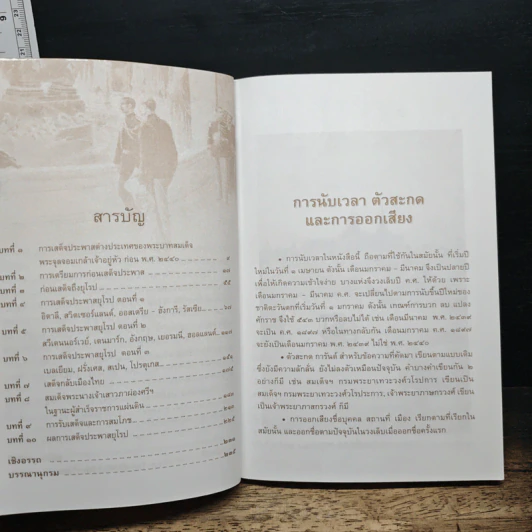 สารบัญ
บทที่ ๑ การเสด็จประพาสต่างประเทศของพระบาทสมเด็จ
พระจุลจอมเกล้าเจ้าอยู่หัว ก่อน พ.ศ. ๒๔๔๐ ๙
บทที่ ๒ การเตรียมการก่อนเสด็จประพาส
บทที่ ๓ ก่อนเสด็จถึงยุโรป
บทที่ ๔ การเสด็จประพาสยุโรป ตอนที่ ๑
อิตาลี, สวิตเซอร์แลนด์, ออสเตรีย - ฮังการี, รัสเซีย
บทที่ ๕ การเสด็จประพาสยุโรป ตอนที่ ๒
สวีเดนนอร์เวย์, เดนมาร์ก, อังกฤษ, เยอรมนี, ฮอลแลนด์
บทที่ ๖ การเสด็จประพาสยุโรป ตอนที่ ๓
เบลเยียม, ฝรั่งเศส, สเปน, โปรตุเกส
บทที่ ๗ เสด็จกลับเมืองไทย
บทที่ ๘ สมเด็จพระนางเจ้าเสาวภาผ่องศรีฯ
ในฐานะผู้สำเร็จราชการแผ่นดิน
บทที่ ๙ การรับเสด็จและการสมโภช
บทที่ ๑๐ ผลการเสด็จประพาสยุโรป
เชิงอรรถ
บรรณานุกรม
การนับเวลา ตัวสะกด
และการออกเสียง
• การนับเวลาในหนังสือนี้ ถือตามที่ใช้กันในสมัยนั้น ที่เริ่มปี
ใหม่ในวันที่ ๑ เมษายน ดังนั้น เดือนมกราคม - มีนาคม จึงเป็นปลายปี
เพื่อให้เกิดความเข้าใจง่าย บางแห่งจึงวงเล็บปี ค.ศ. ให้ด้วย เพราะ
เดือนมกราคม - มีนาคม ค.ศ. จะเปลี่ยนไปตามการนับขึ้นปีใหม่ของ
ชาติตะวันตกที่เริ่มวันที่ ๑ มกราคม ดังนั้น เกณฑ์การบวก ลบ แปลง
ศักราช จึงใช้ ๕๔๓ บวกหรือลบไม่ได้ เช่น เดือนมีนาคม พ.ศ. ๒๔๓๙
จะเป็น ค.ศ. ๑๘๙๗ หรือในทางกลับกัน เดือนมกราคม ค.ศ. ๑๘๙๗
จะยังเป็นเดือนมกราคม พ.ศ. ๒๔๓๙ ไม่ใช่ พ.ศ. ๒๔๔๐
• ตัวสะกด การันต์ สำหรับข้อความที่คัดมา เขียนตามแบบเดิม
ซึ่งยังมีความลักลั่น ยังไม่ลงตัวเหมือนปัจจุบัน คำบางคำเขียนกัน ๒
อย่างก็มี เช่น สมเด็จฯ กรมพระยาเทวะวงศ์วโรปการ เขียนเป็น
สมเด็จฯ กรมพระยาเทววงศ์วโรปการ, เจ้าพระยาภาสกรวงศ์ เขียน
เป็นเจ้าพระยาภาสกรวงศ์ ก็มี
• การออกเสียงชื่อบุคคล สถานที่ เมือง เรียกตามที่เรียกใน
สมัยนั้น และออกชื่อตามปัจจุบันในวงเล็บเมื่อออกชื่อครั้งแรก